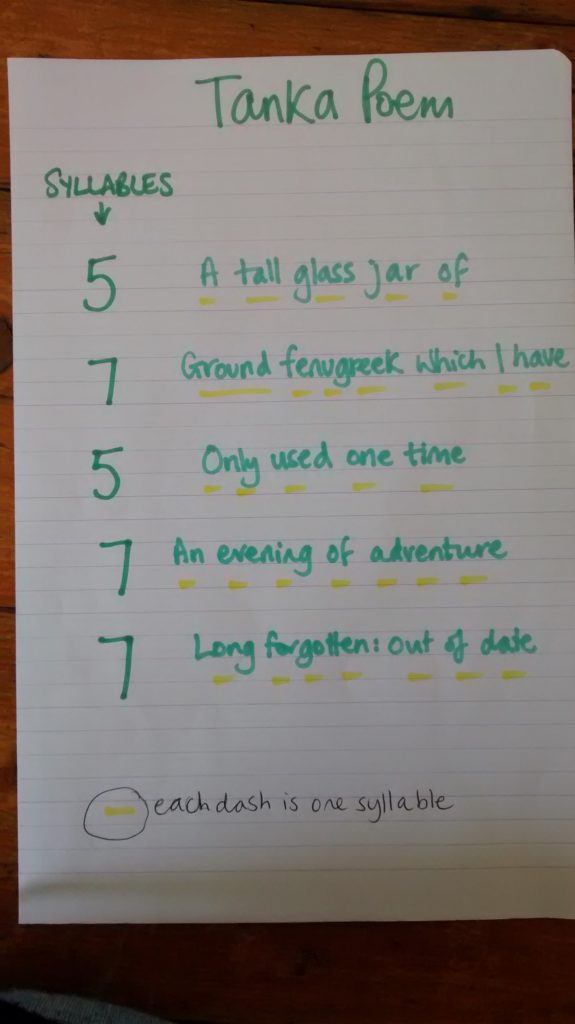 Tanka Poem
SYLLABLES
5 A tall glass jar of
7 Ground fenugreek which I have
5 Only used one time
7 An evening of adventure
7 Long forgotten: out of date
each dash is one syllable